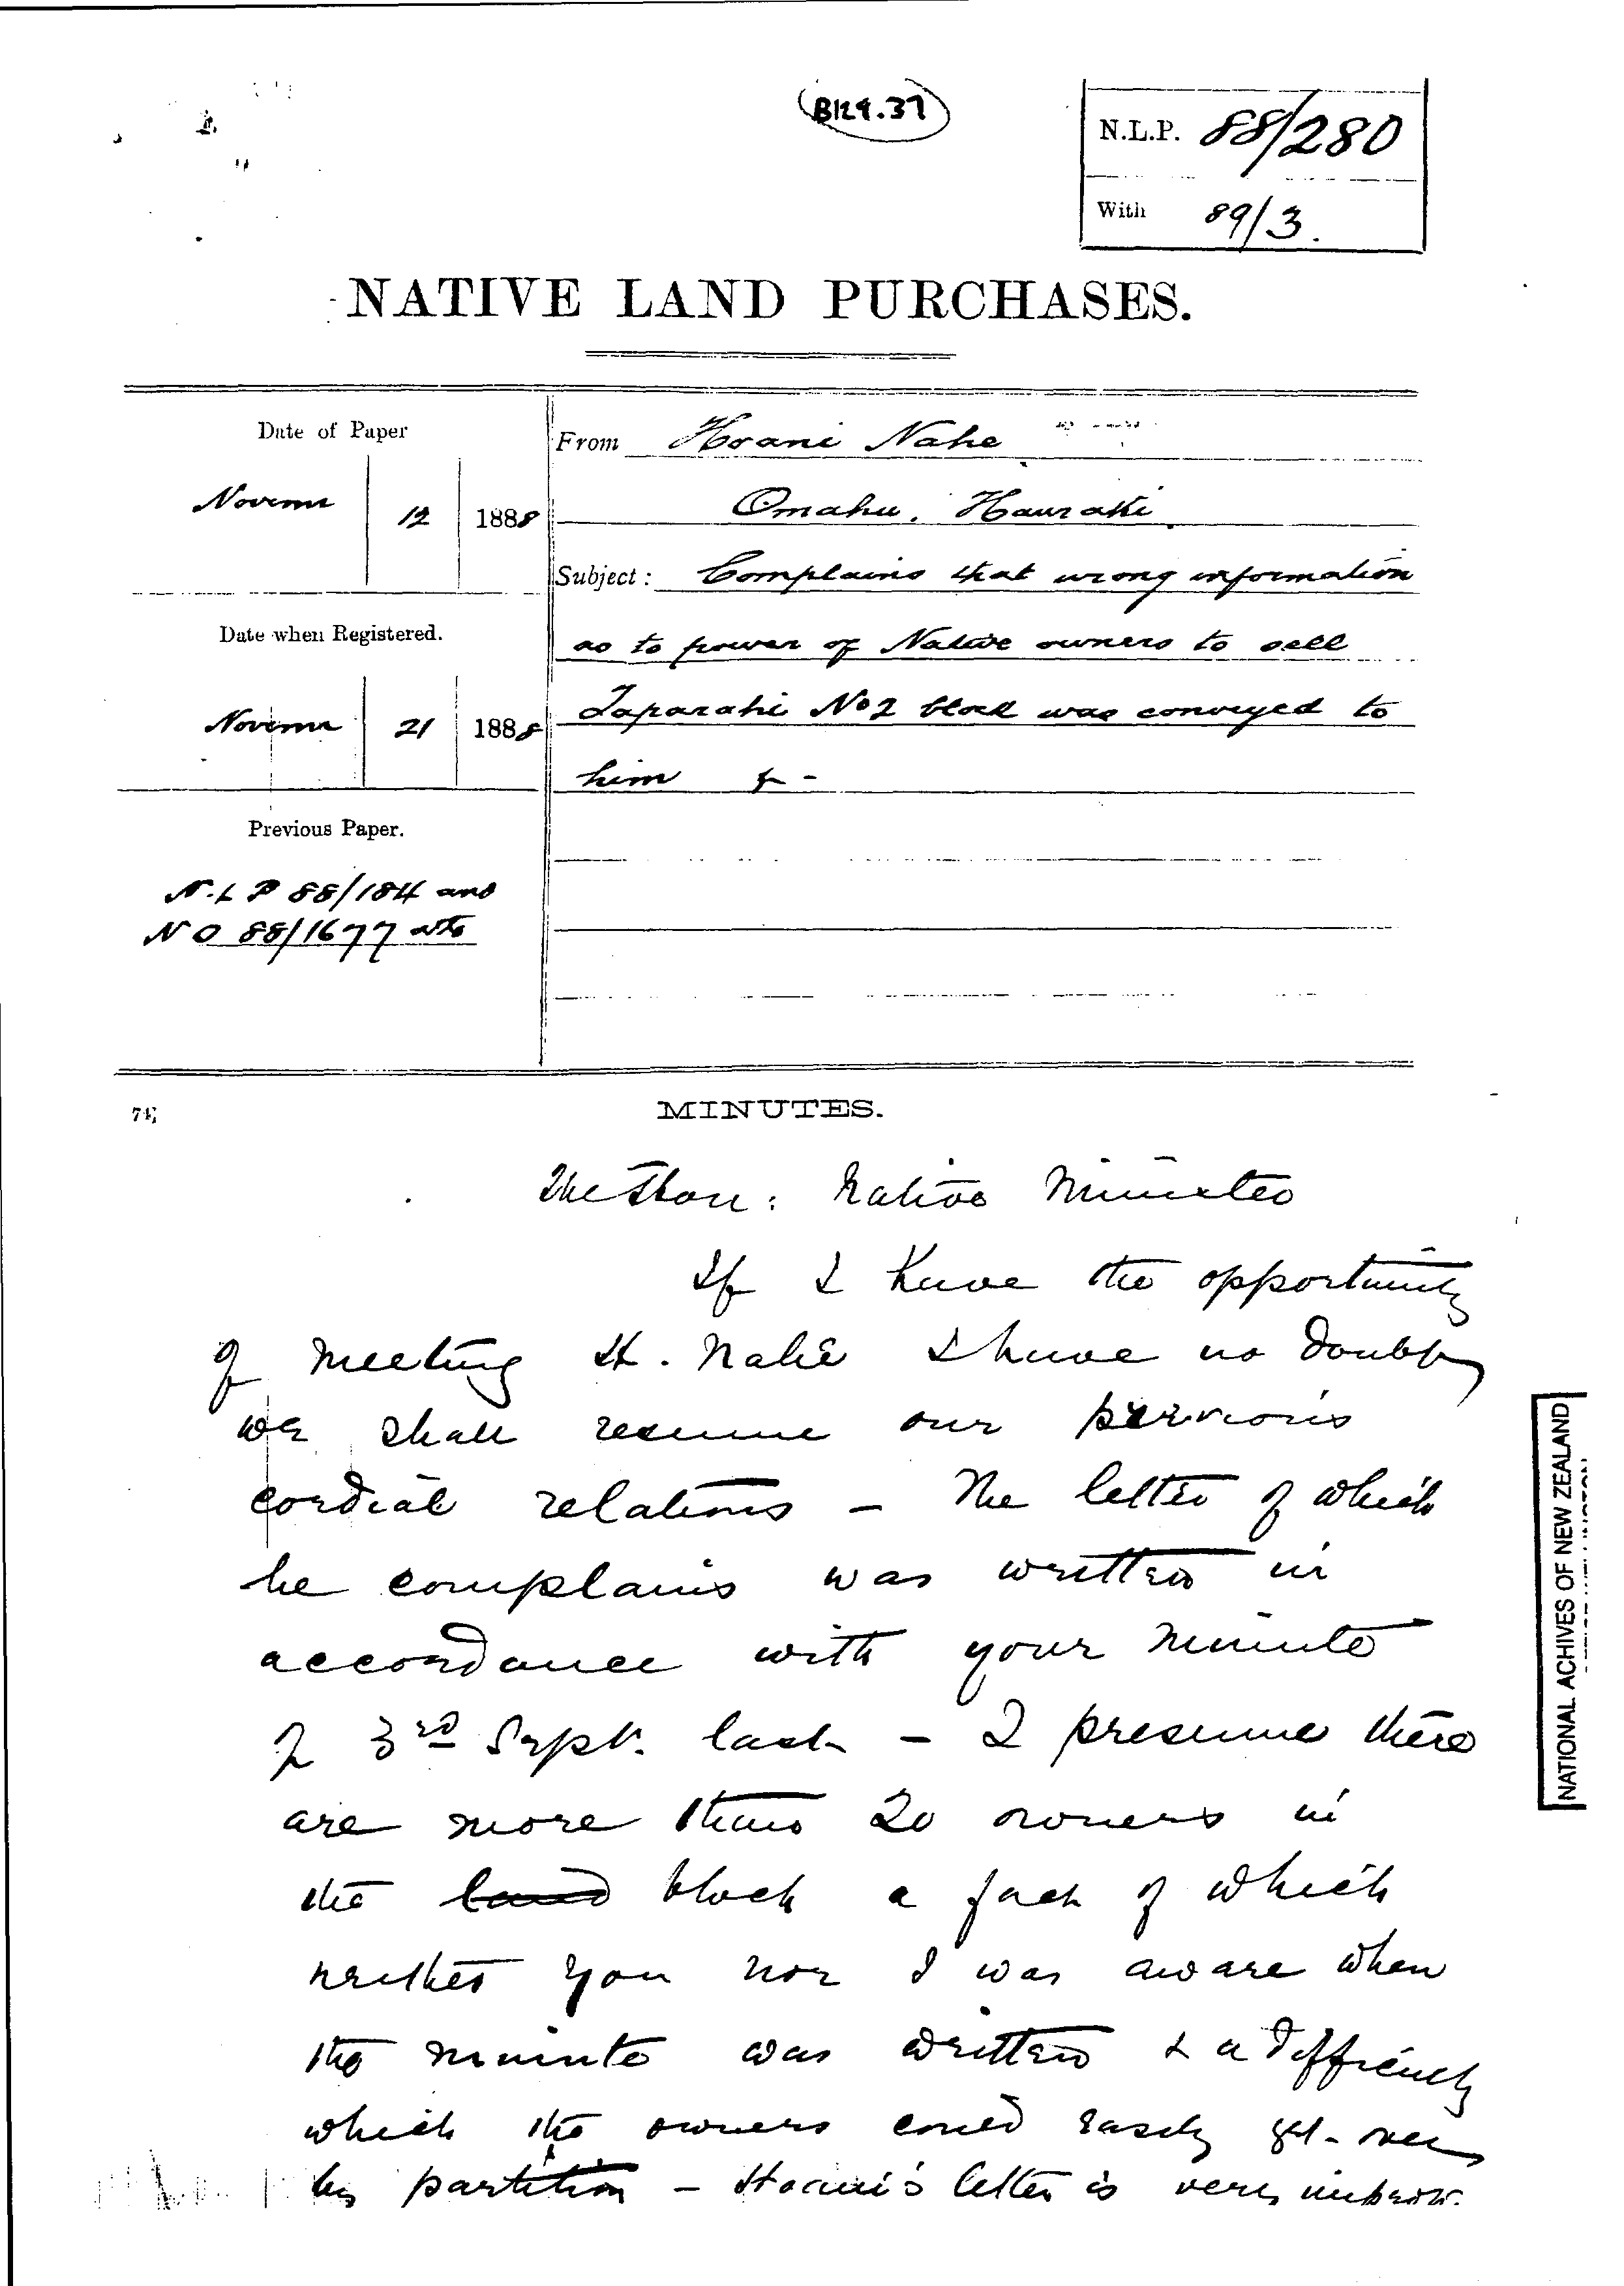 B129.37
N.L.P. 88/280
With 89/3.
NATIVE LAND PURCHASES.
Date of Paper
Novemr 12 1888
From Hoani Nahe
Omahu. Hauraki
Subject: Complains that wrong information
as to power of Native owners to sell
Taparahi No 2 block was conveyed to
him &-
Date when Registered.
Novemr 21 1888
Previous Paper.
N.L P 88/184 and
N O 88/1677
MINUTES.
The Hon: Native Minister
If I have the opportunity
of meeting H. Nahe I have no doubt
we shall resume our previous
cordial relations - The letter of which
he complains was written in
accordance with your minute
of 3rd Sept. last - I presume there
are more than 20 owners in
the land block a fact of which
neither you nor I was aware when
the minute was written & a difficulty
which the owners could easily get over
by partition - Hoani's letter is very
NATIONAL ACHIVES OF NEW ZEALAND